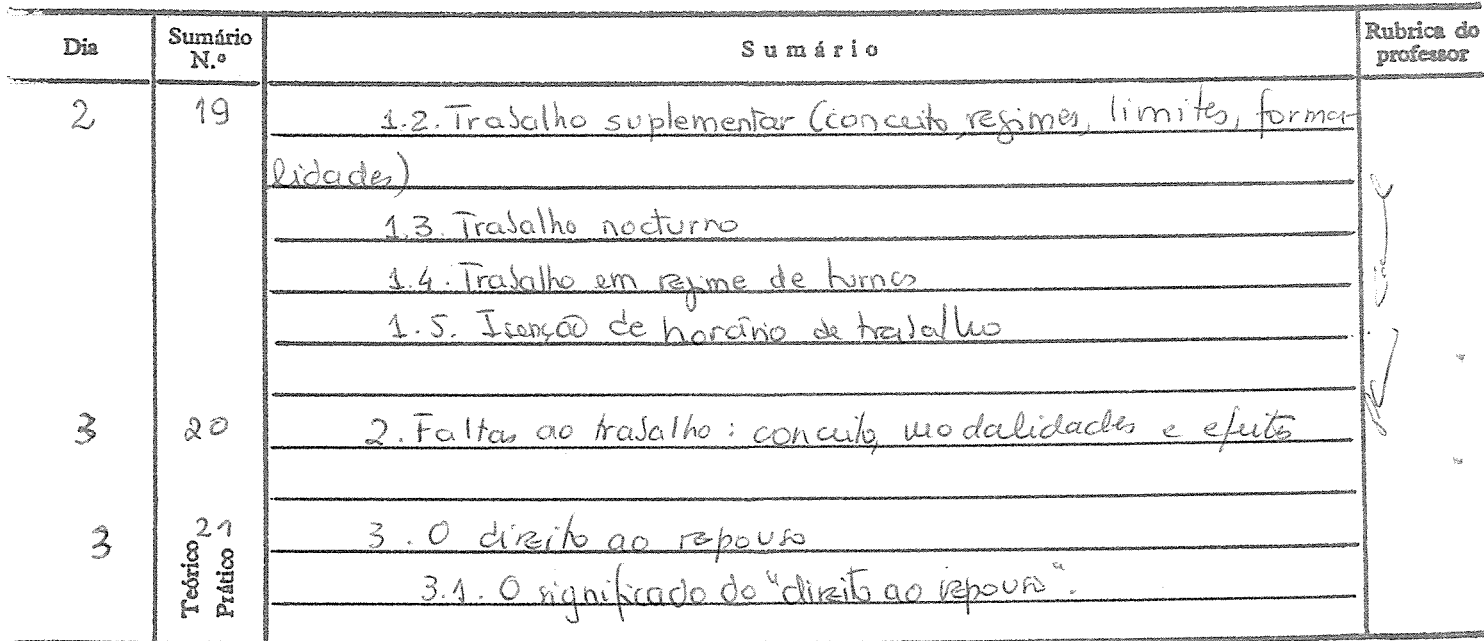 Dia Sumário N.º Sumário Rubrica do professor
2 19 1.2. Trabalho suplementar (conceito, regimes, limites, forma-
lidades)
1.3. Trabalho nocturno
1.4. Trabalho em regime de turnos
1.5. Isenção de horário de trabalho
3 20 2. Faltas ao trabalho: conceito, modalidades e efeitos
3 21 Teórico Prático 3. O direito ao repouso
3.1. O significado do "direito ao repouso".